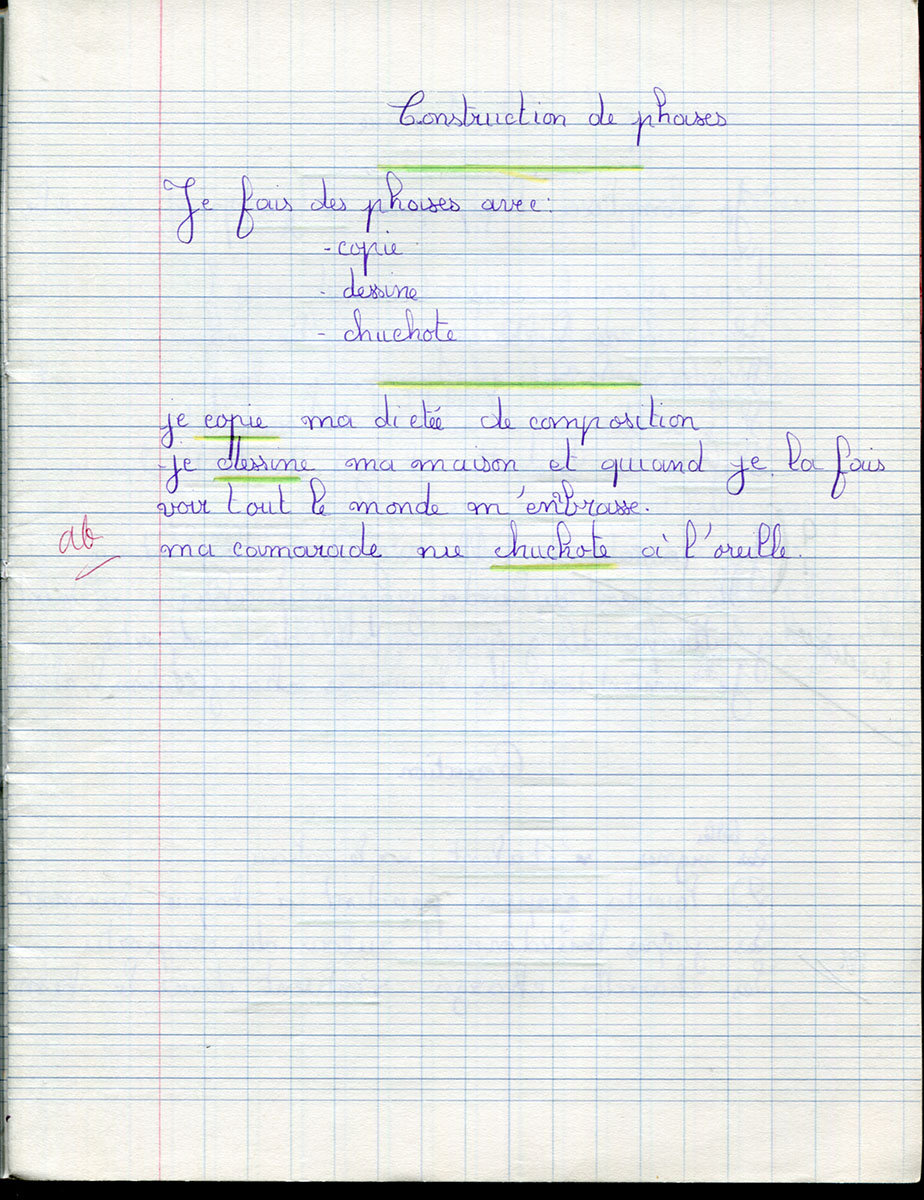 Construction de phases
Je fais des phases avec:
- copie
- dessine
- chuchote
je copie ma dictée de composition
-je dessine ma maison et quand je la fais
voir tout le monde m'embrasse.
ab
ma camarade me chuchote à l'oreille.